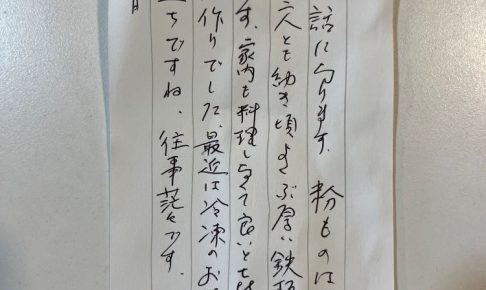 話になります。粉ものは
二人とも幼き頃よりぶ厚い鉄板
す。家内も料理しなくて良いと
作りでした。最近は冷凍のお
ちですね。往事茫々です。
月